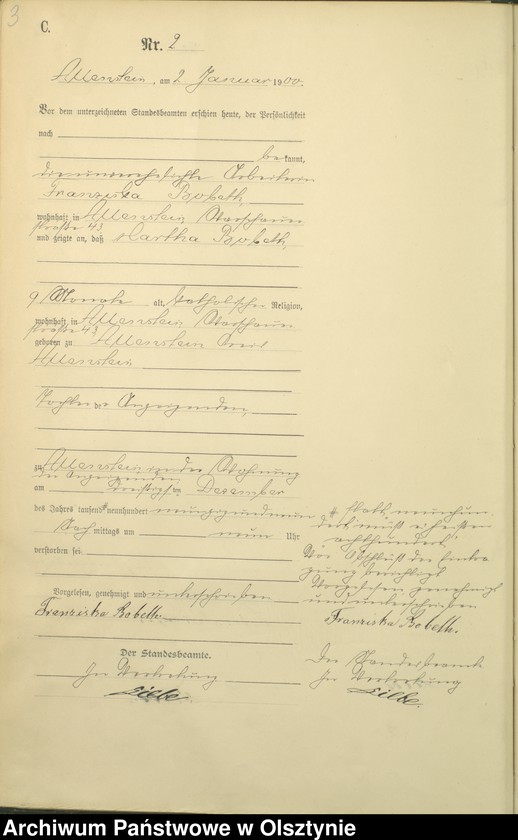 3
C.
Nr. 2
Allenstein, am 2 Januar 1900.
Vor dem unterzeichneten Standesbeamten erschien heute, der Persönlichkeit
nach
bekannt,
die unverehelichte Arbeiterin
Franziska Bobeth,
wohnhaft in Allenstein
straße 43
und zeigte an, daß Martha Bobeth,
9 Monate alt, katholischer Religion,
wohnhaft in Allenstein
straße 43
geboren zu Allenstein Kreis
Allenstein
Tochter der Anzeigenden,
zu Allenstein in der Wohnung
der Anzeigenden
am dreißigsten Dezember
des Jahres tausend neunhundert neunzigundneun
Nachmittags um neun Uhr
verstorben sei.
Vorgelesen, genehmigt und unterschrieben
Franziska Bobeth.
Der Standesbeamte.
In Vertretung
Lilbe
statt neunhun-
dert muß es heißen
achthundert.
Vor Abschluß der Eintra-
gung berichtigt
Vorgelesen genehmigt
und unterschrieben
Franziska Bobeth.
Der Standesbeamte
In Vertretung
Lilbe.
Archiwum Państwowe w Olsztynie